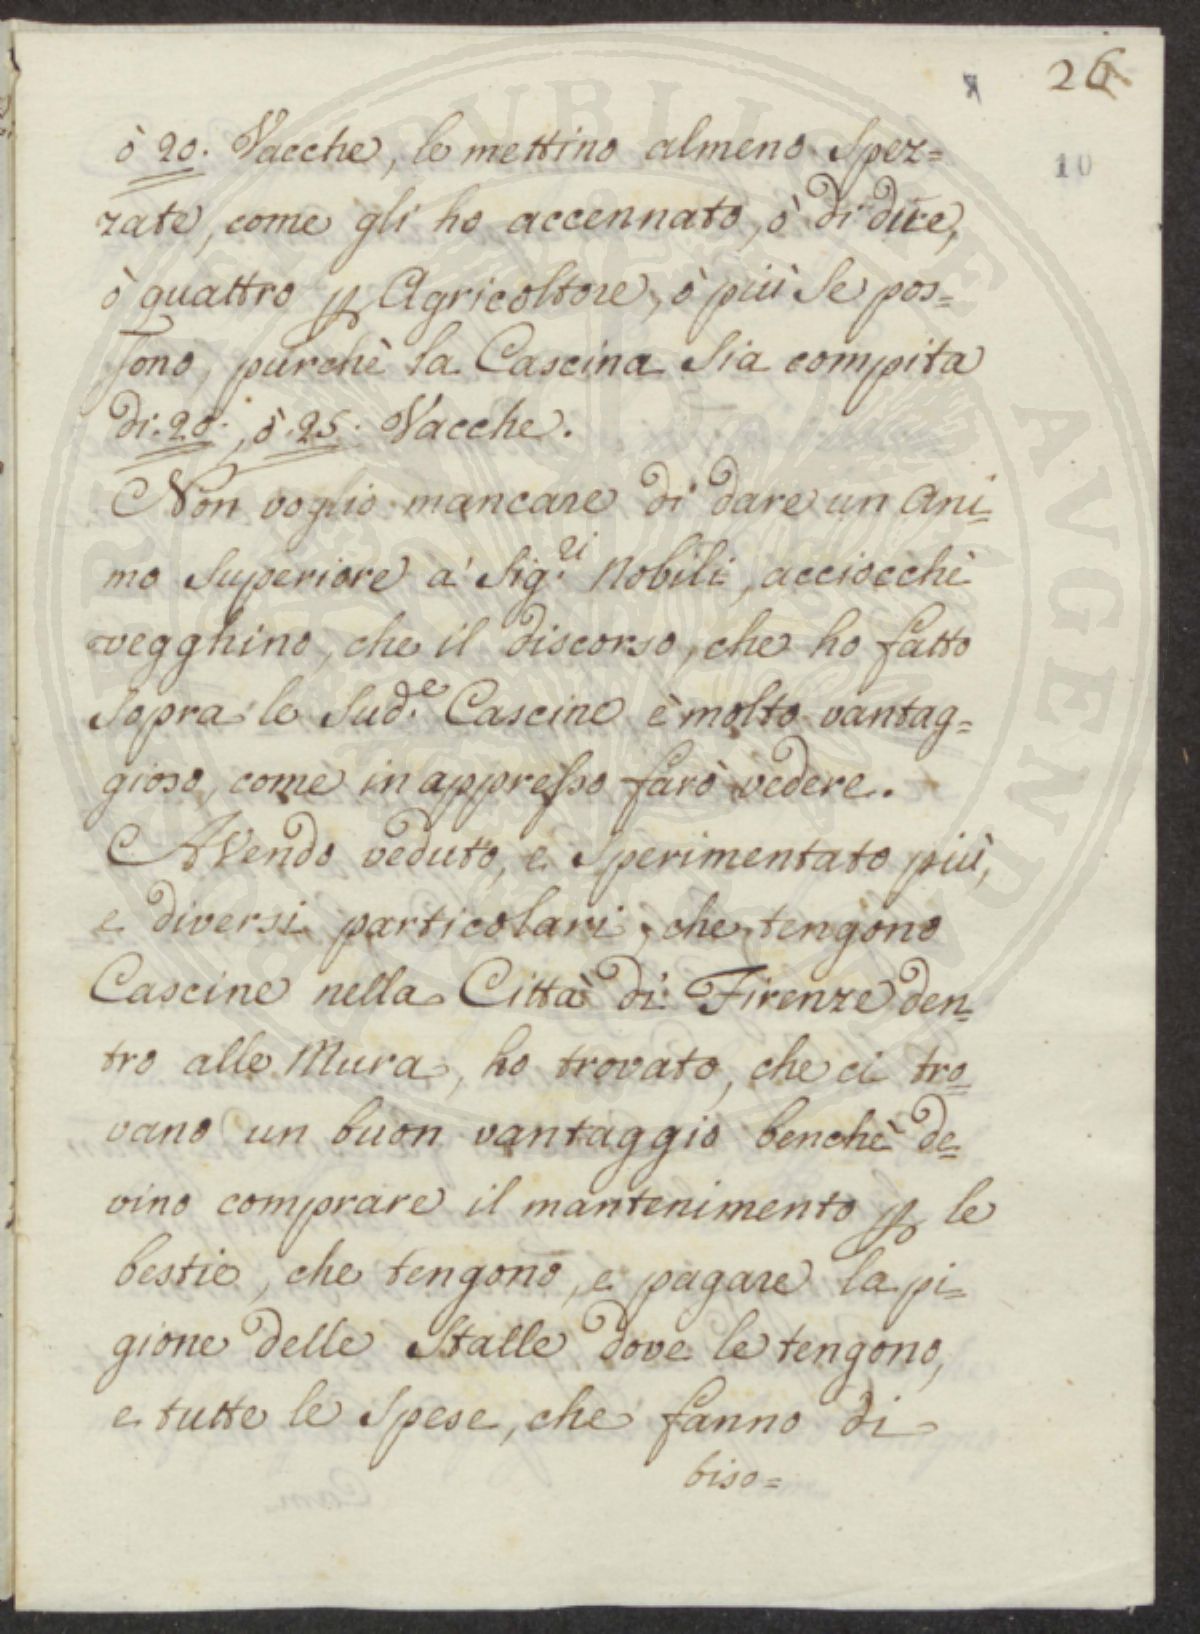 26
10
ò 20. Vacche, le mettino almeno Spez=
zate, come gli ho accennato, ò di due,
ò quattro p Agricoltore, ò più se pos=
sono, purchè la Cascina sia compita
di 20., ò 25. Vacche.
Non voglio mancare di dare un Ani=
mo Superiore a' Sig.ri Nobili, acciocchè
vegghino, che il discorso, che ho fatto
sopra le Sud.e Cascine è molto vantag=
gioso, come in appresso farò vedere.
Avendo veduto, e sperimentato più,
e diversi particolari, che tengono
Cascine nella Città di Firenze den=
tro alle Mura, ho trovato, che ci tro=
vano un buon vantaggio benchè de=
vino comprare il mantenimento p le
bestie, che tengono, e pagare la pi=
gione delle Stalle dove le tengono,
e tutte le Spese, che fanno di
biso=